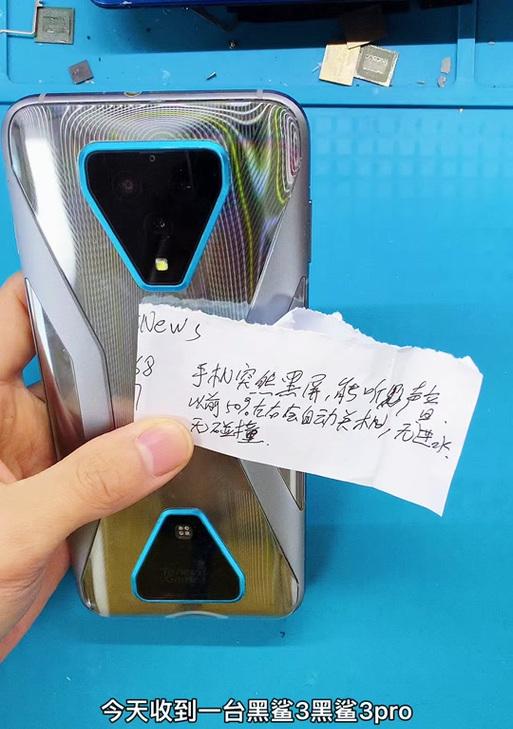 News
68
7
手机突然黑屏,能听见声音
以前50%左右会自动关机,无进水
无碰撞.
今天收到一台黑鲨3黑鲨3pro